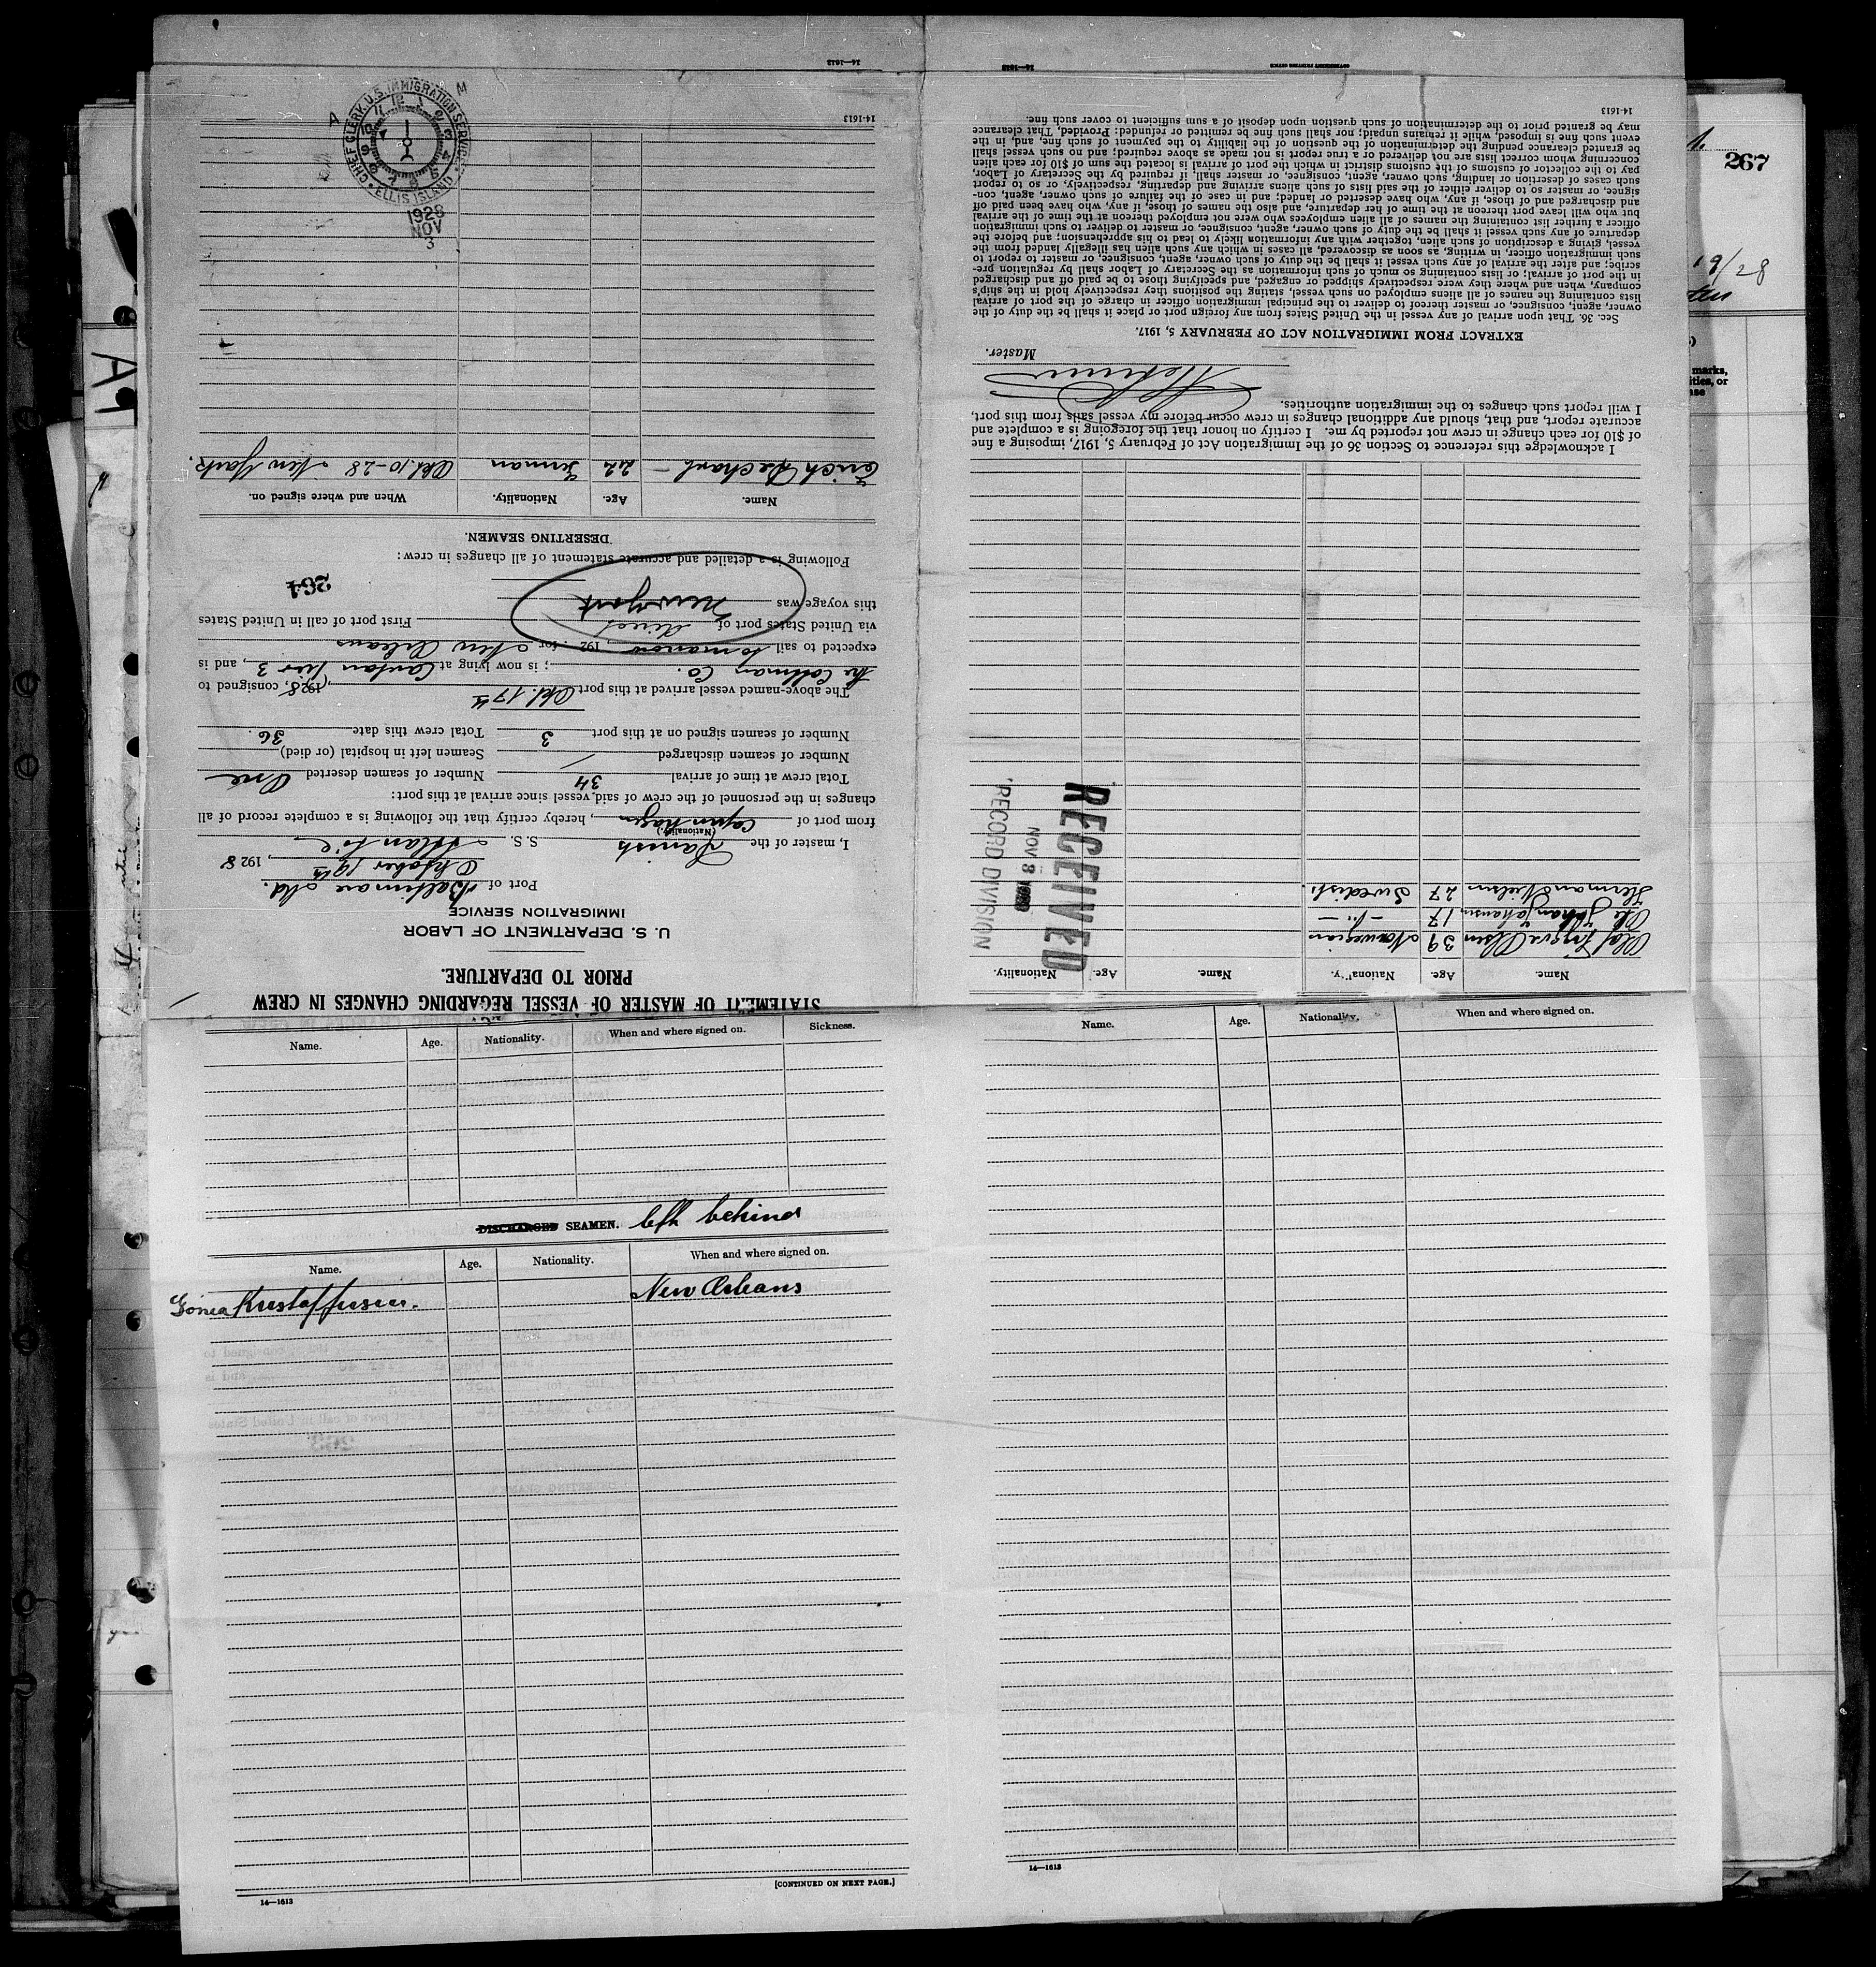 STATEMENT OF MASTER OF VESSEL REGARDING CHANGES IN CREW
PRIOR TO DEPARTURE.
U. S. DEPARTMENT OF LABOR
IMMIGRATION SERVICE
Port of Baltimore Md.
Oktober 19th, 1928
I, master of the Danish S. S. Atlantic
(Nationality.)
from port of Copenhagen, hereby certify that the following is a complete record of all
changes in the personnel of the crew of said vessel since arrival at this port:
Total crew at time of arrival 34 Number of seamen deserted One
Number of seamen discharged / Seamen left in hospital (or died)
Number of seamen signed on at this port 3 Total crew this date 36.
The above-named vessel arrived at this port Okt. 17th, 1928, consigned to
The Cottman Co. ; is now lying at Canton Pier 3, and is
expected to sail tomorrow, 192 , for New Orleans
via United States port of direct First port of call in United States
this voyage was New York
264
Following is a detailed and accurate statement of all changes in crew:
DESERTING SEAMEN.
Name. Age. Nationality. When and where signed on.
Erich 22 German Okt. 10-28 New York.
1928
NOV
3
CHIEF CLERK, U.S. IMMIGRATION SERVICE
ELLIS ISLAND
A M
14-1613
Name. Age. Nationality. Name. Age. Nationality.
Olaf Olsen 39 Norwegian
Ole Johan Johansen 17 -"-
Herman Nielsen 27 Swedish.
RECEIVED
NOV 8
RECORD DIVISION
I acknowledge this reference to Section 36 of the Immigration Act of February 5, 1917, imposing a fine
of $10 for each change in crew not reported by me. I certify on honor that the foregoing is a complete and
accurate report, and that, should any additional changes in crew occur before my vessel sails from this port,
I will report such changes to the immigration authorities.
Master.
EXTRACT FROM IMMIGRATION ACT OF FEBRUARY 5, 1917.
Sec. 36. That upon arrival of any vessel in the United States from any foreign port or place it shall be the duty of the
owner, agent, consignee, or master thereof to deliver to the principal immigration officer in charge of the port of arrival
lists containing the names of all aliens employed on such vessel, stating the positions they respectively hold in the ship's
company, when and where they were respectively shipped or engaged, and specifying those to be paid off and discharged
in the port of arrival; or lists containing so much of such information as the Secretary of Labor shall by regulation pre-
scribe; and after the arrival of any such vessel it shall be the duty of such owner, agent, consignee, or master to report to
such immigration officer, in writing, as soon as discovered, all cases in which any such alien has illegally landed from the
vessel, giving a description of such alien, together with any information likely to lead to his apprehension; and before the
departure of any such vessel it shall be the duty of such owner, agent, consignee, or master to deliver to such immigration
officer a further list containing the names of all alien employees who were not employed thereon at the time of the arrival
but who will leave port thereon at the time of her departure, and also the names of those, if any, who have been paid off
and discharged and of those, if any, who have deserted or landed; and in case of the failure of such owner, agent, con-
signee, or master so to deliver either of the said lists of such aliens arriving and departing, respectively, or so to report
such cases of desertion or landing, such owner, agent, consignee, or master shall if required by the Secretary of Labor,
pay to the collector of customs of the customs district in which the port of arrival is located the sum of $10 for each alien
concerning whom correct lists are not delivered or a true report is not made as above required; and no such vessel shall
be granted clearance pending the determination of the question of the liability to the payment of such fine, and, in the
event such fine is imposed, while it remains unpaid; nor shall such fine be remitted or refunded: Provided, That clearance
may be granted prior to the determination of such question upon deposit of a sum sufficient to cover such fine.
14-1613
14—1613
14—1613
GOVERNMENT PRINTING OFFICE
267
19/28
marks,
ities, or
Name. Age. Nationality. When and where signed on. Sickness.
DISCHARGED SEAMEN. left behind
Name. Age. Nationality. When and where signed on.
New Orleans
[CONTINUED ON NEXT PAGE.]
14—1613
Name. Age. Nationality. When and where signed on.
14—1613